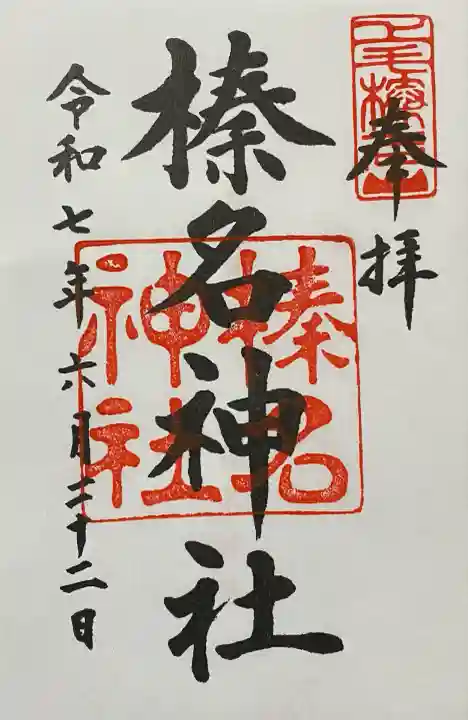 奉拝
榛名神社
令和七年六月二十二日
上毛榛
榛名
神社